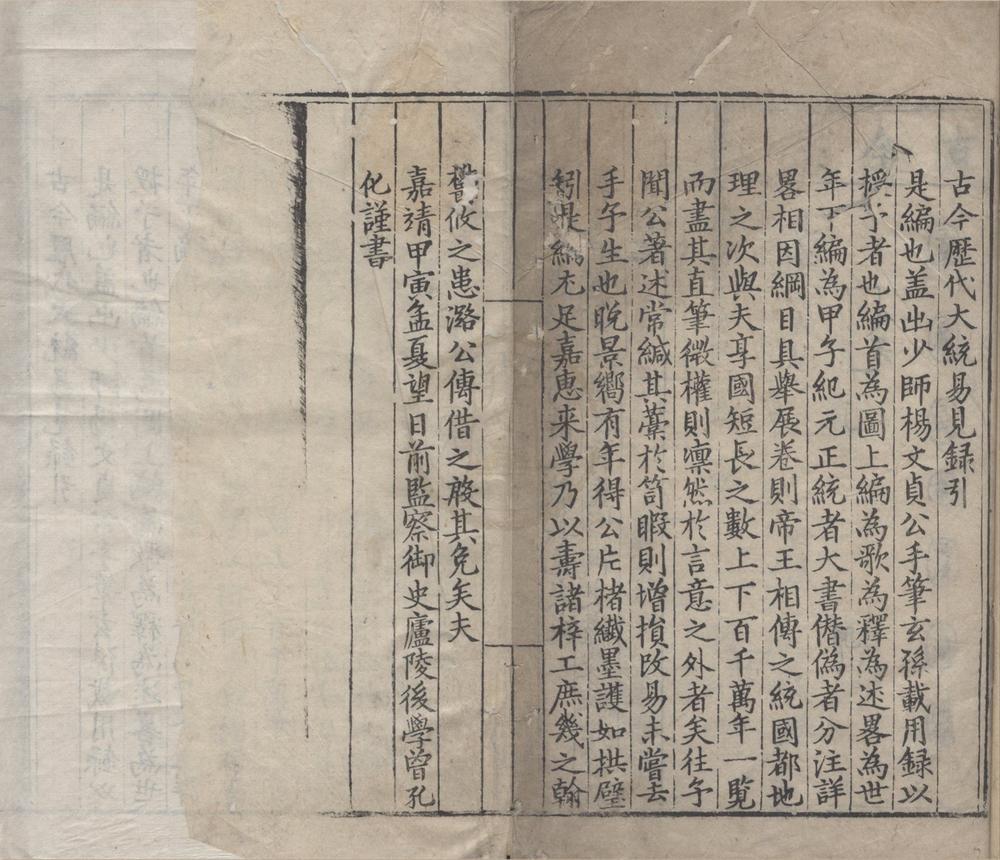 古今歴代大統易見録引
是編也盖出少師楊文貞公手筆玄孫載用録以
授予者也編首為圖上編為歌為釋為述畧為世
年下編為甲子紀元正統者大書僣偽者分注詳
畧相因綱目具舉展卷則帝王相傳之統國都地
理之次與夫享國短長之數上下百千萬年一覧
而盡其直筆微權則凛然於言意之外者矣徃予
聞公著述常緘其藳於笥暇則增損改易未嘗去
手予生也晚景嚮有年得公片楮纎墨護如拱璧
矧是編尤足嘉惠来學乃以壽諸梓工庶幾之翰
攸之患潞公傳借之殽其免矣夫
嘉靖甲寅孟夏望日前監察御史廬陵後學曾孔
化謹書